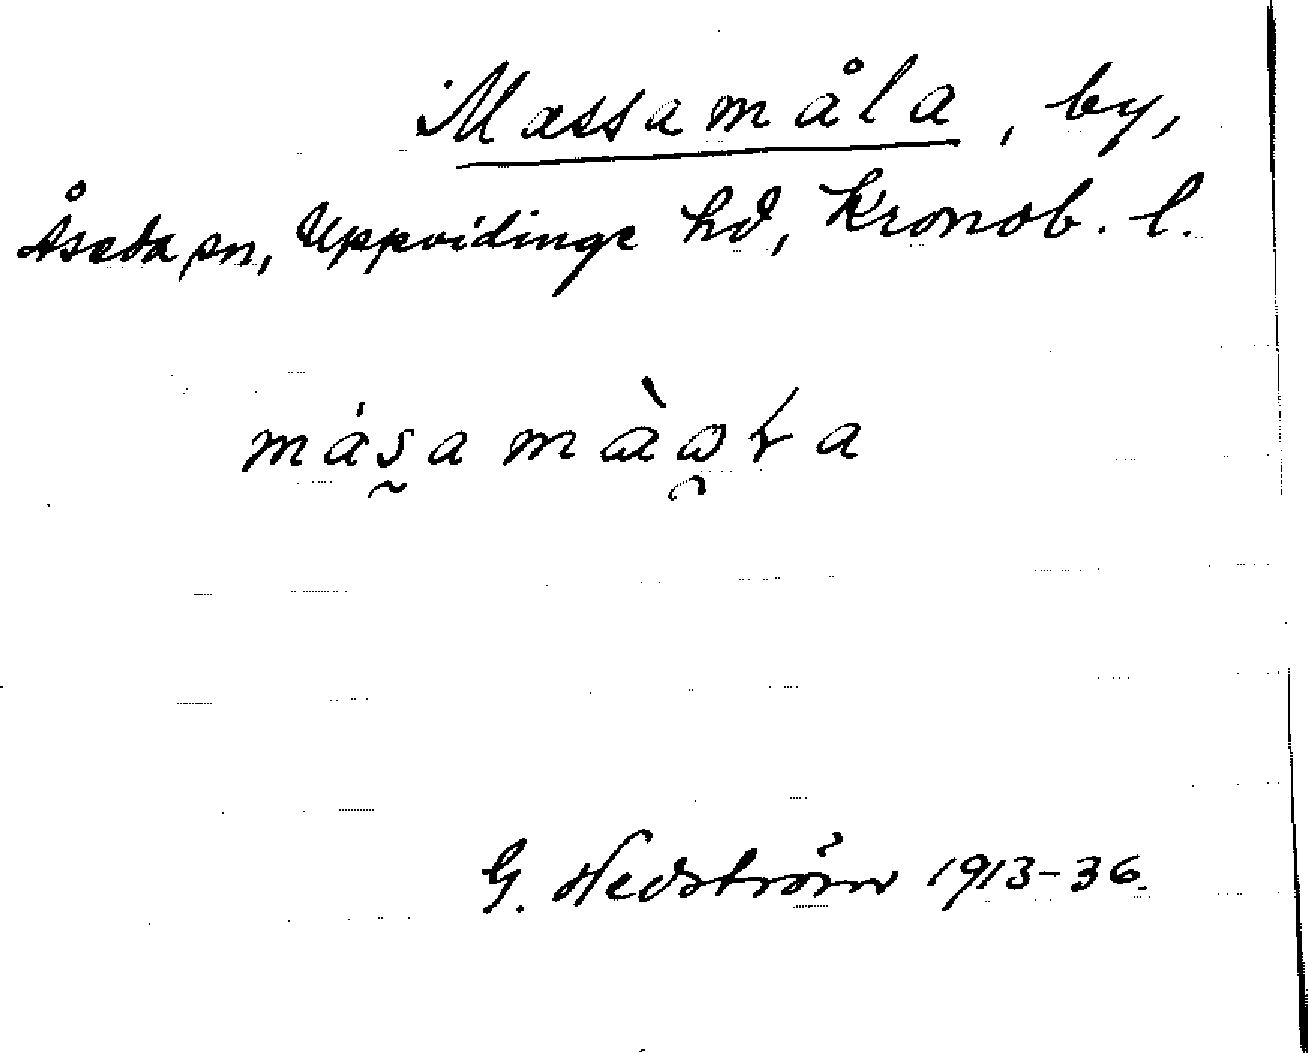 Massamåla, by,
Åseda sn, Uppvidinge hd, Kronob. l.
G. Hedström 1913-36.